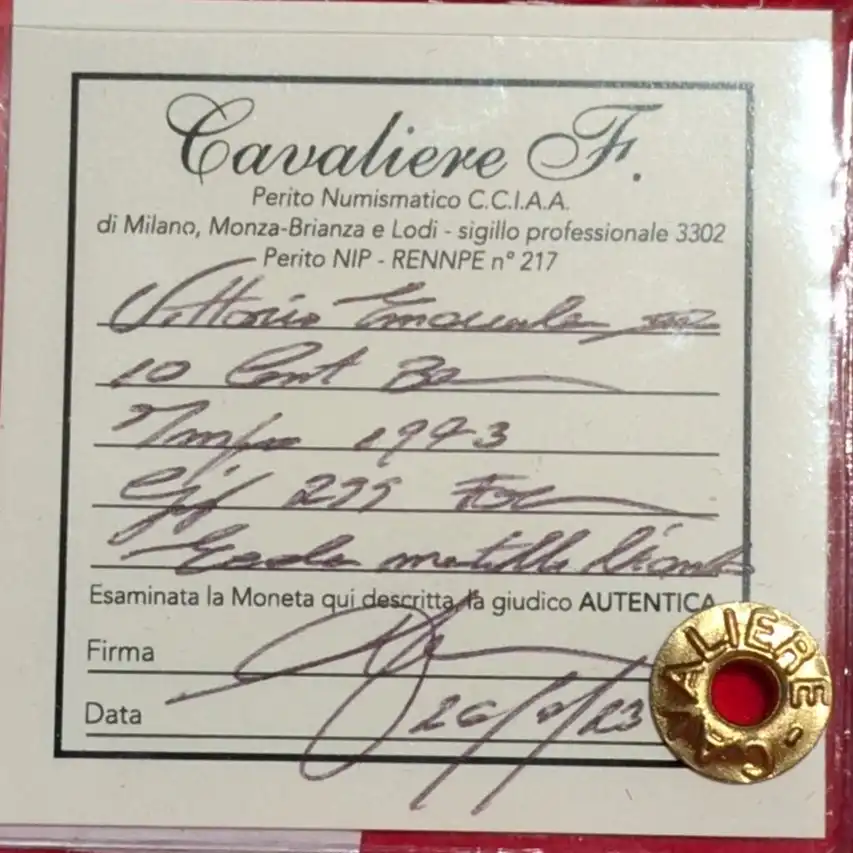 Cavaliere F.
Perito Numismatico C.C.I.A.A.
di Milano, Monza-Brianza e Lodi - sigillo professionale 3302
Perito NIP - RENNPE n° 217
Vittorio Emanuele III
10 Cent
1943
Gig 299 FDC
Esaminata la Moneta qui descritta, la giudico AUTENTICA
Firma
Data 26/ /23
CAVALIERE -